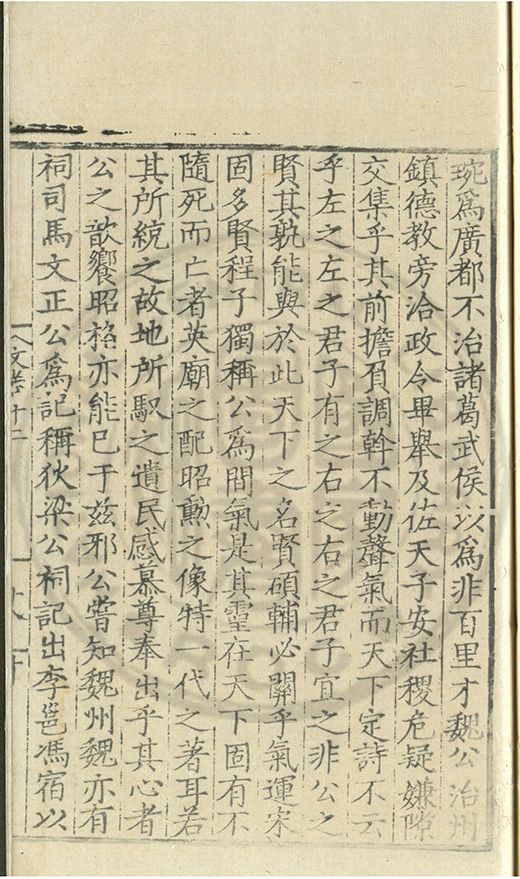 琬為廣都不治諸葛武侯以為非百里才魏公治州
鎮德教旁洽政令畢舉及佐天子安社稷危疑嫌隙
交集乎其前擔負調斡不動聲氣而天下定詩不云
乎左之左之君子有之右之右之君子宜之非公之
賢其孰能與於此天下之名賢碩輔必關乎氣運宋
固多賢程子獨稱公為間氣是其靈在天下固有不
隨死而亡者英廟之配昭勳之像特一代之著耳若
其所統之故地所馭之遺民感慕尊奉出乎其心者
公之歆饗昭格亦能已于茲邪公嘗知魏州魏亦有
祠司馬文正公為記稱狄梁公祠記出李邕馮宿以
文卷十二